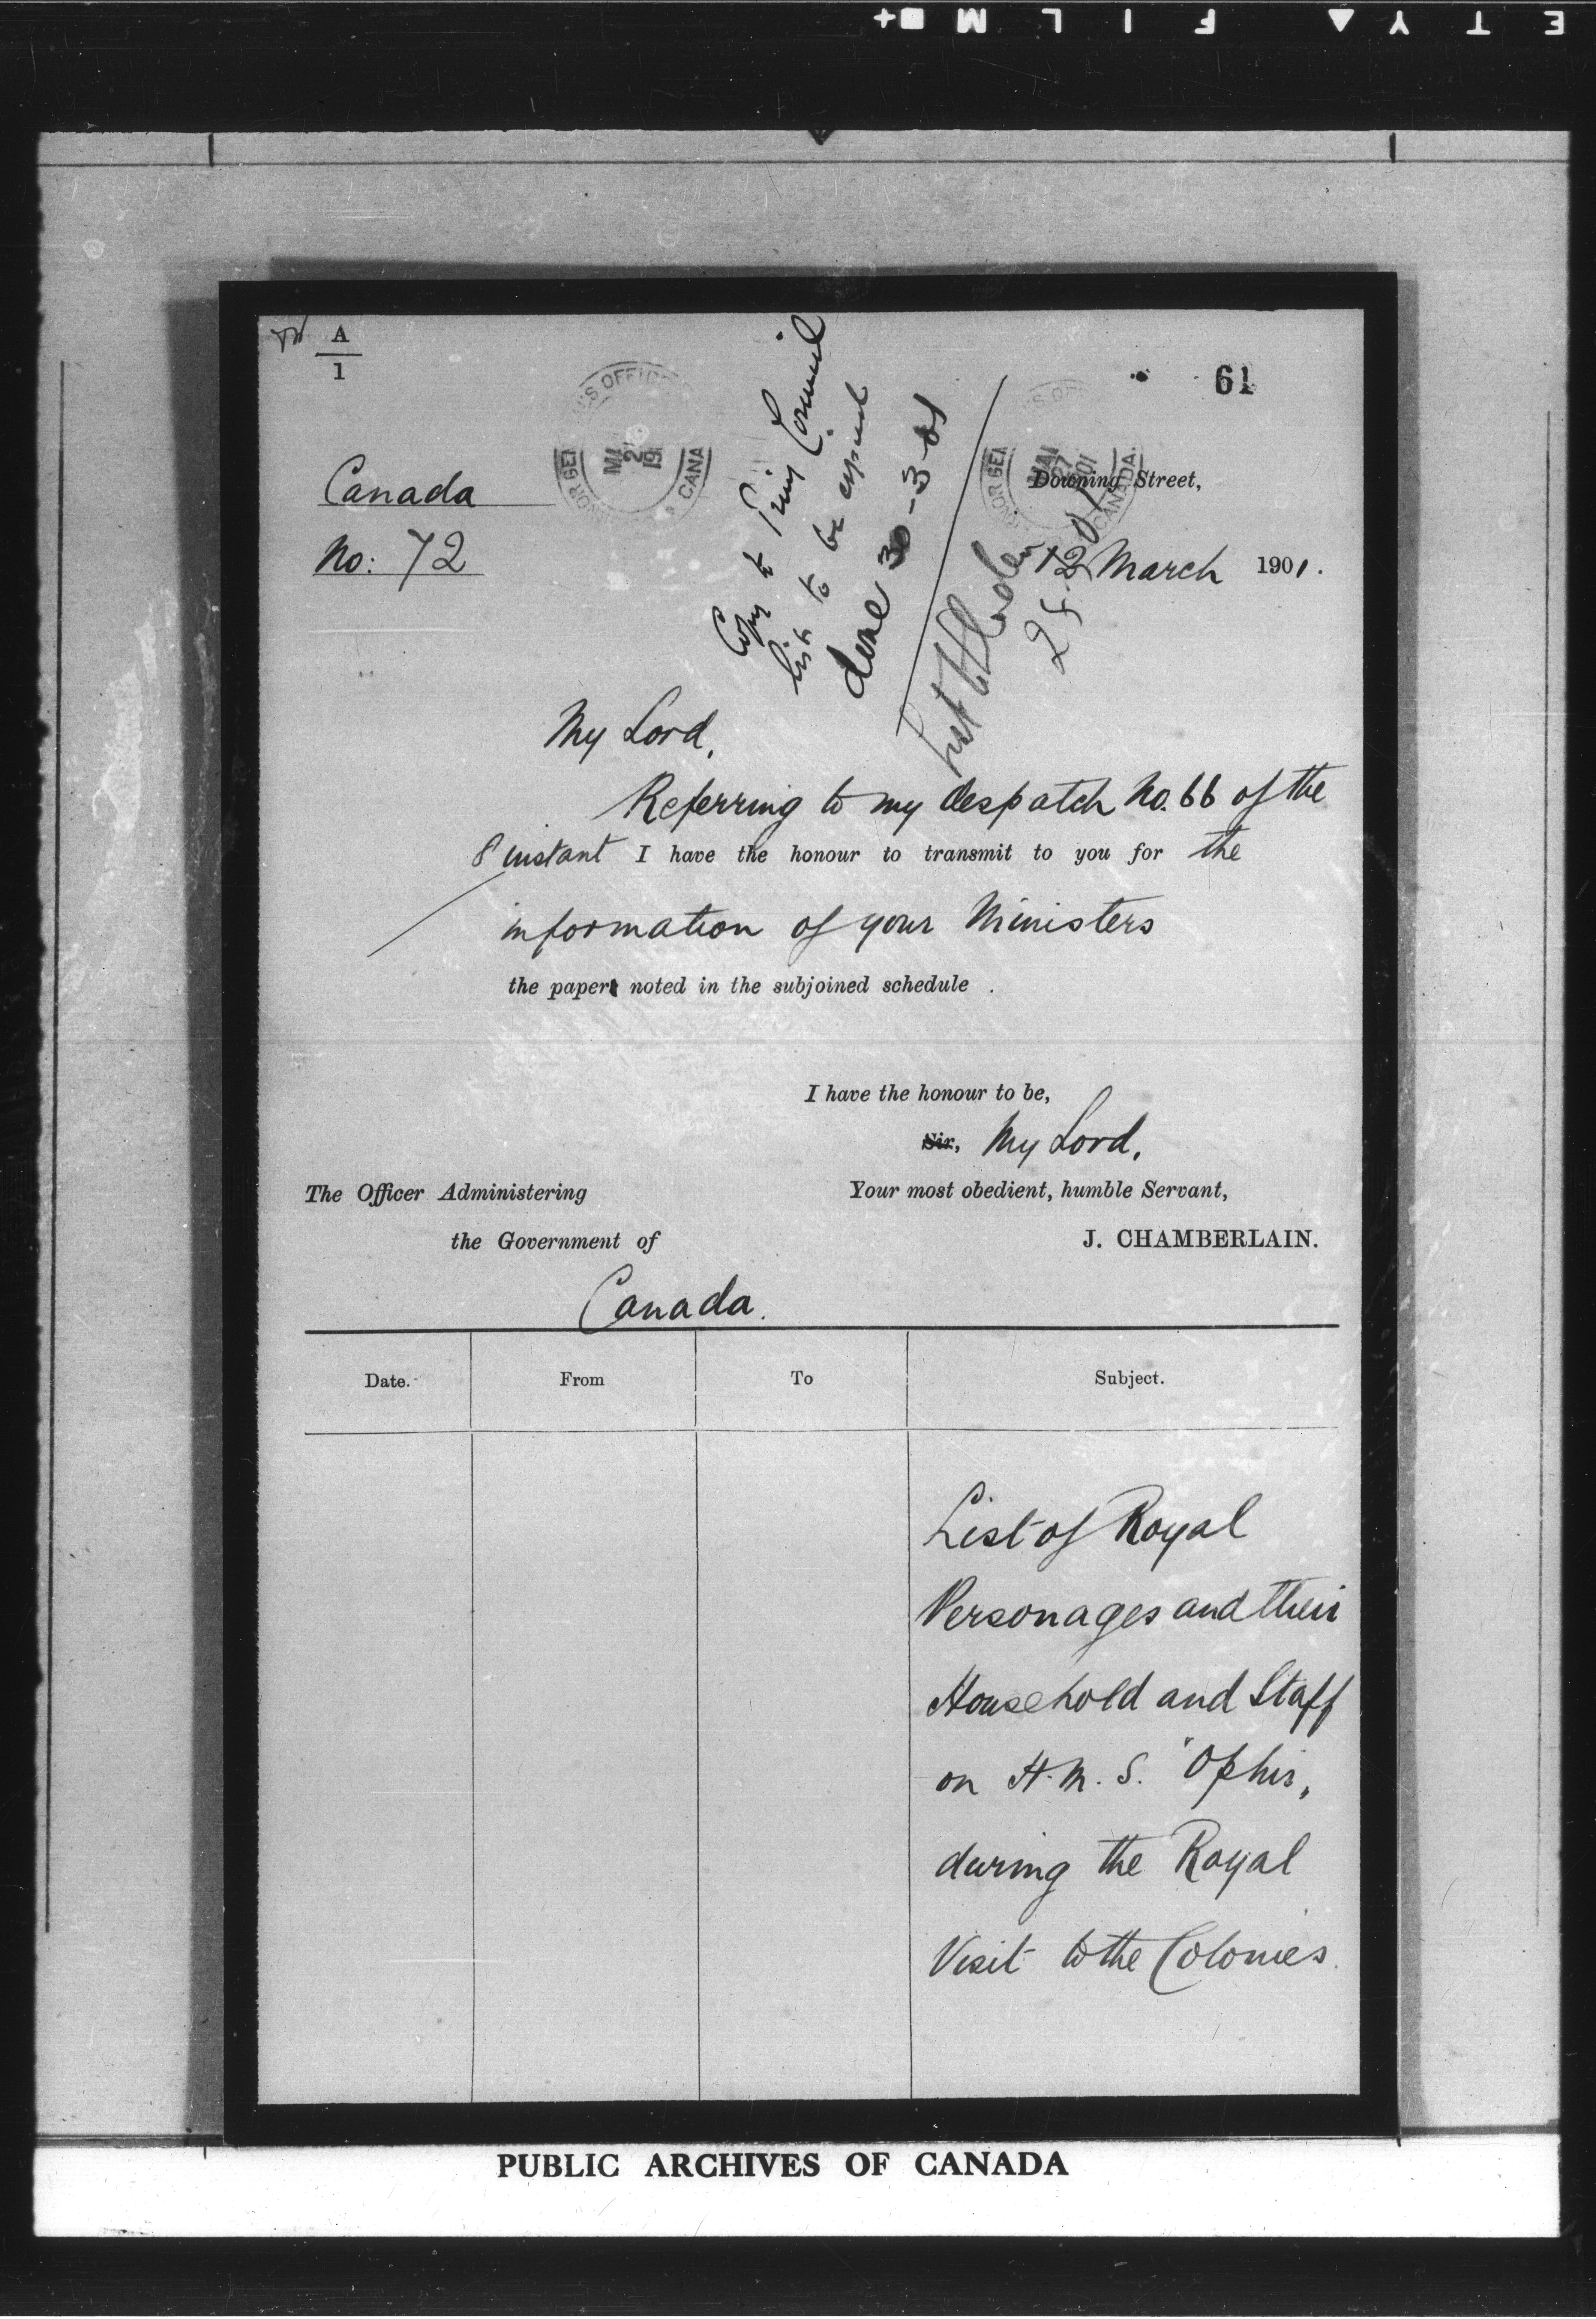 SAFETY FILM
A
1
61
Canada
No: 72
Copy to Privy Council
list to be copied
done 30-3-01
Downing Street,
12 March 1901.
My Lord,
Referring to my despatch No. 66 of the
8 instant I have the honour to transmit to you for the
information of your Ministers
the paper noted in the subjoined schedule .
I have the honour to be,
Sir, My Lord,
Your most obedient, humble Servant,
J. CHAMBERLAIN.
The Officer Administering
the Government of
Canada.
Date. From To Subject.
List of Royal
Personages and their
Household and Staff
on H.M.S. "Ophir"
during the Royal
Visit to the Colonies.
PUBLIC ARCHIVES OF CANADA